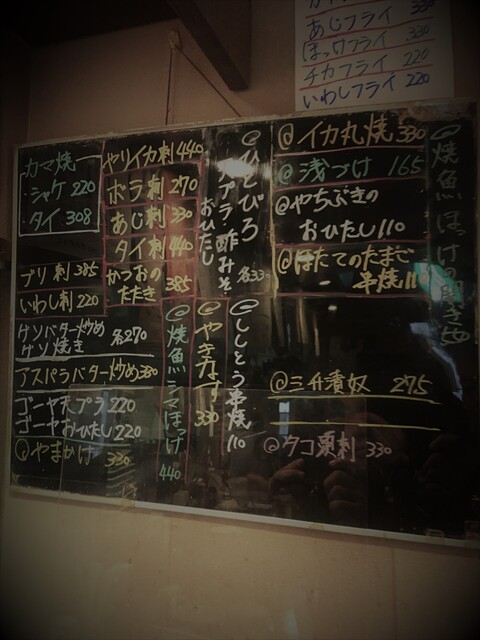 あじフライ 330
ほっけフライ 330
チカフライ 220
いわしフライ 220
カマ焼
・シャケ 220
・タイ 308
ブリ刺 385
いわし刺 220
ゲソバター炒め
ゲソ焼き 各270
アスパラバター炒め 330
ゴーヤ天プラ 220
ゴーヤおひたし 220
@やまかけ 330
ヤリイカ刺 440
ボラ刺 270
あじ刺 330
タイ刺 440
かつおの
たたき 385
@焼魚シマほっけ 440
@ひとびろ
天プラ 酢みそ
おひたし 各330
@やきなす 330
@ししとう串焼 110
@イカ丸焼 330
@浅づけ 165
@やちぶきの
おひたし 110
@ほたてのたまご
串焼 110
@三升漬奴 275
@タコ頭刺 330
@焼魚ほっけの開き